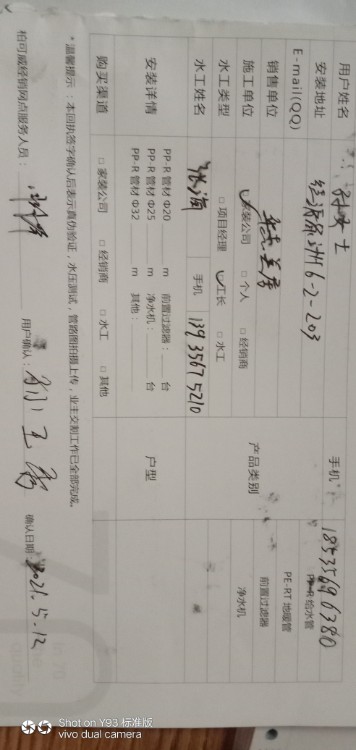 用户姓名 女士 手机 18535696380
安装地址 6-2-203 PP-R给水管
E-mail(QQ) PE-RT地暖管
销售单位 产品类别 前置过滤器
施工单位 家装公司 □个人 □经销商 净水机
水工类型 □项目经理 工长 □水工
水工姓名 张海 手机 13935675210
安装详情 PP-R管材 Φ20 m 前置过滤器: 台 户型
PP-R管材 Φ25 m 净水机: 台
PP-R管材 Φ32 m 其他:
购买渠道 □家装公司 □经销商 □水工 □其他
*温馨提示:本回执签字确认后表示真伪验证,水压测试,管路图拍摄上传,业主交割工作已全部完成。
柏可威经销网点服务人员: 用户确认: 确认日期: 2021.5.12
Shot on Y93 标准版
vivo dual camera